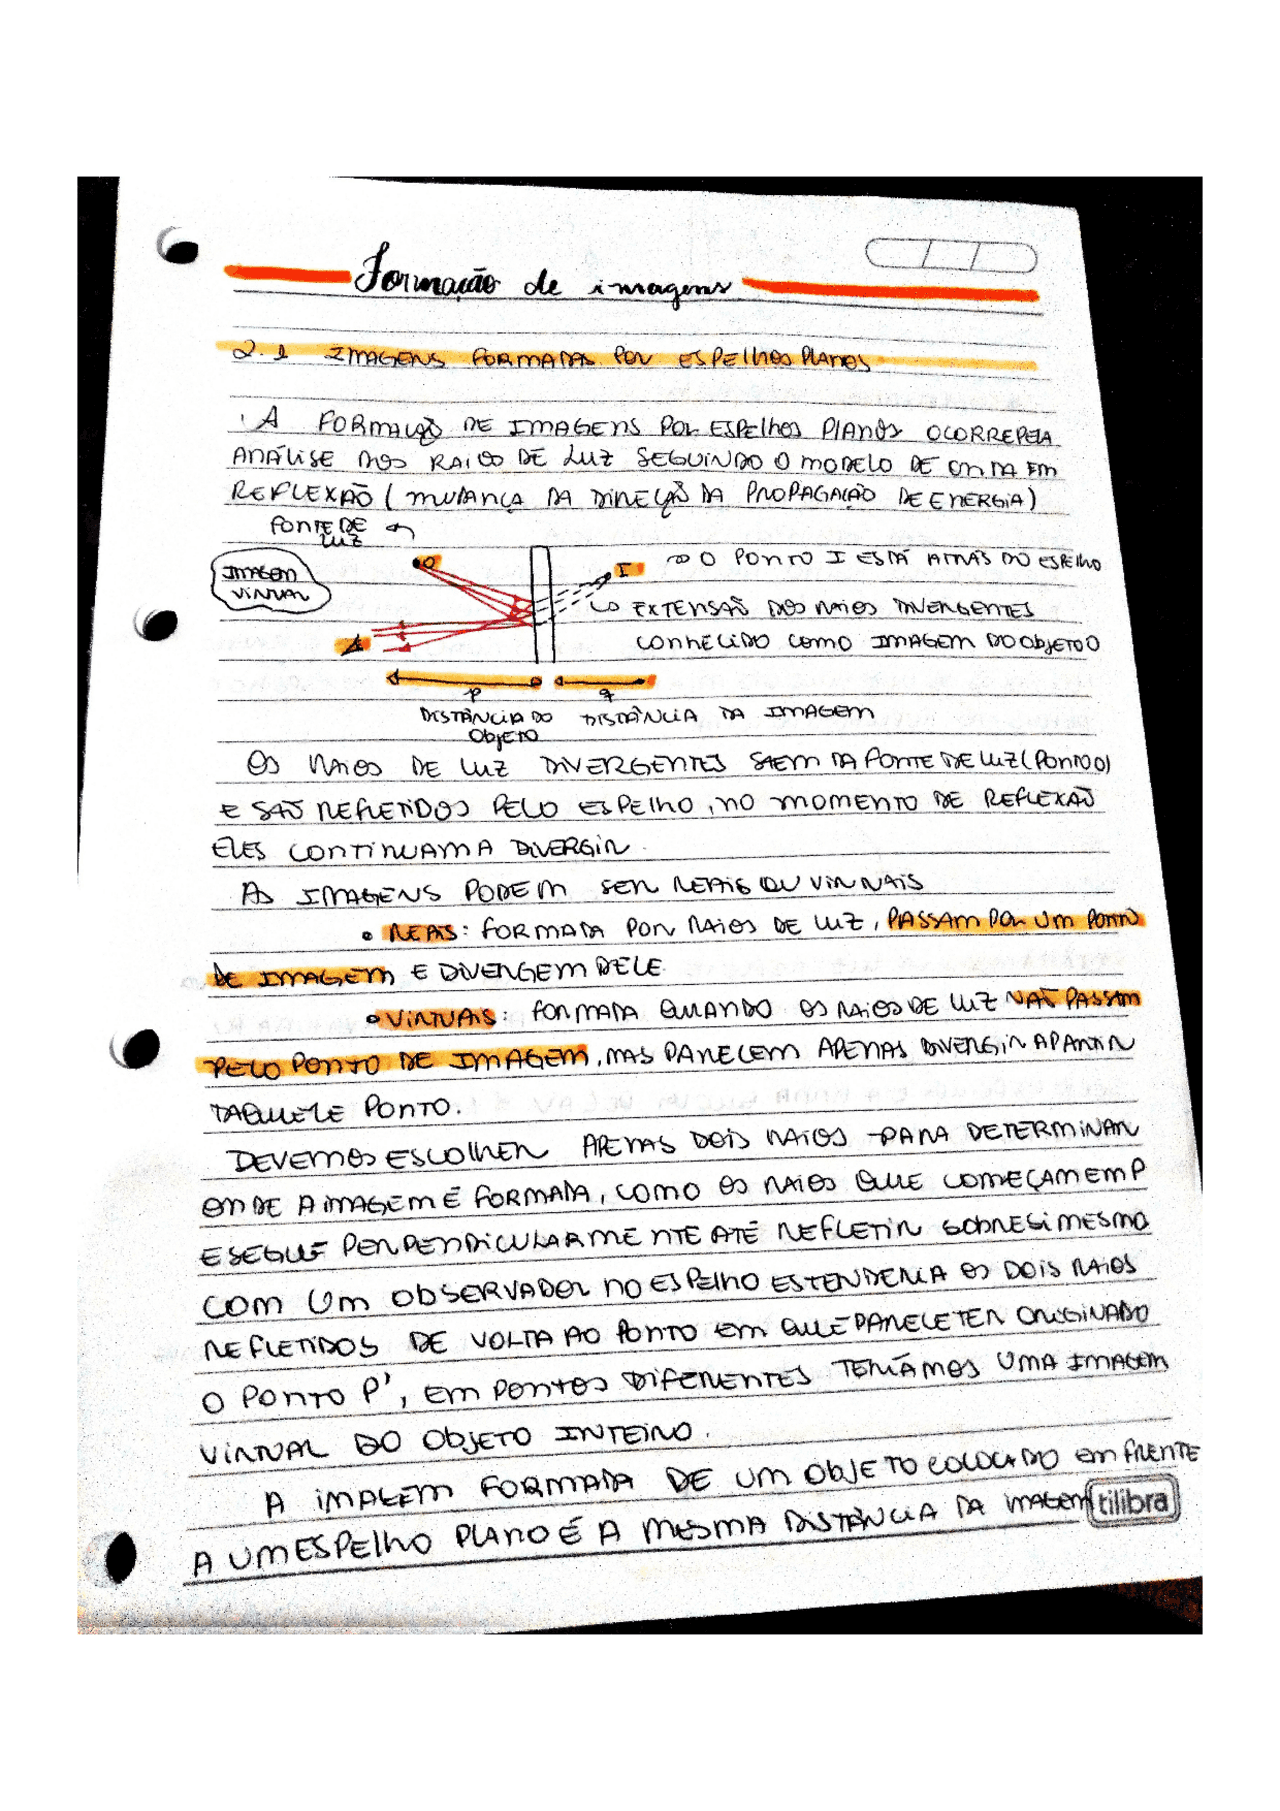 Formação de imagens
2.1 IMAGENS FORMADAS POR ESPELHOS PLANOS
. A FORMAÇÃO DE IMAGENS POR ESPELHOS PLANOS OCORRE PELA
ANÁLISE DOS RAIOS DE LUZ SEGUINDO O MODELO DE ONDA EM
REFLEXÃO (MUDANÇA DA DIREÇÃO DA PROPAGAÇÃO DE ENERGIA)
FONTE DE
LUZ
IMAGEM
VIRTUAL
O
I
→ O PONTO I ESTÁ ATRÁS DO ESPELHO
↳ EXTENSÃO DOS RAIOS DIVERGENTES
CONHECIDO COMO IMAGEM DO OBJETO O
p
q
DISTÂNCIA DO
OBJETO
DISTÂNCIA DA IMAGEM
OS RAIOS DE LUZ DIVERGENTES SAEM DA FONTE DE LUZ (PONTO O)
E SÃO REFLETIDOS PELO ESPELHO, NO MOMENTO DE REFLEXÃO
ELES CONTINUAM A DIVERGIR.
AS IMAGENS PODEM SER REAIS OU VIRTUAIS
• REAIS: FORMADA POR RAIOS DE LUZ, PASSAM POR UM PONTO
DE IMAGEM E DIVERGEM DELE.
• VIRTUAIS: FORMADA QUANDO OS RAIOS DE LUZ NÃO PASSAM
PELO PONTO DE IMAGEM, MAS PARECEM APENAS DIVERGIR A PARTIR
DAQUELE PONTO.
DEVEMOS ESCOLHER APENAS DOIS RAIOS PARA DETERMINAR
ONDE A IMAGEM É FORMADA, COMO OS RAIOS QUE COMEÇAM EM P
E SEGUE PERPENDICULARMENTE ATÉ REFLETIR SOBRE SI MESMO
COM UM OBSERVADOR NO ESPELHO ESTENDERIA OS DOIS RAIOS
REFLETIDOS DE VOLTA AO PONTO EM QUE PARECE TER ORIGINADO
O PONTO P', EM PONTOS DIFERENTES TERÍAMOS UMA IMAGEM
VIRTUAL DO OBJETO INTEIRO.
A IMAGEM FORMADA DE UM OBJETO COLOCADO EM FRENTE
A UM ESPELHO PLANO É A MESMA DISTÂNCIA DA IMAGEM
tilibra